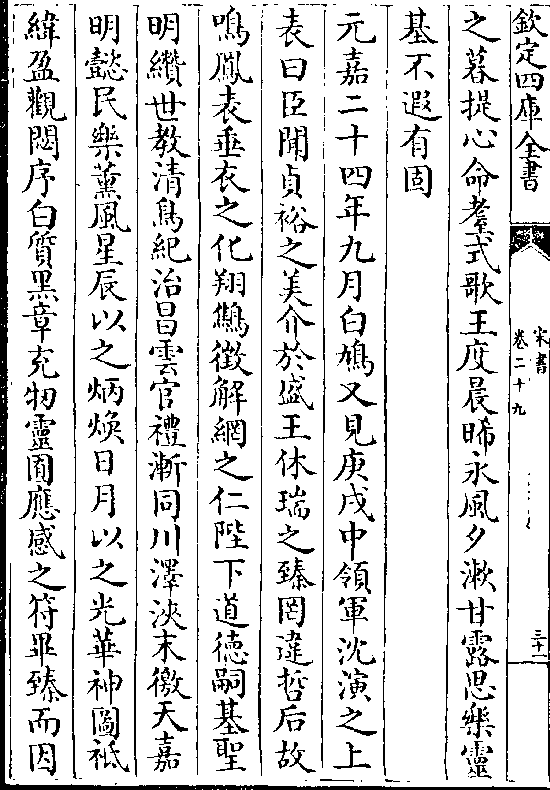 欽定四庫全書
宋書
卷二十九
三十一
之暮提心命耋式歌王度晨晞永風夕漱甘露思樂靈
基不遐有固
元嘉二十四年九月白鳩又見庚戌中領軍沈演之上
表曰臣聞貞裕之美介於盛王休瑞之臻罔違哲后故
鳴鳳表垂衣之化翔鷫徵解網之仁陛下道德嗣基聖
明纘世教清鳥紀治昌雲官禮漸同川澤浹末徼天嘉
明懿民樂薰風星辰以之炳煥日月以之光華神圖祗
緯盈觀閟序白質黑章充牣靈囿應感之符畢臻而因